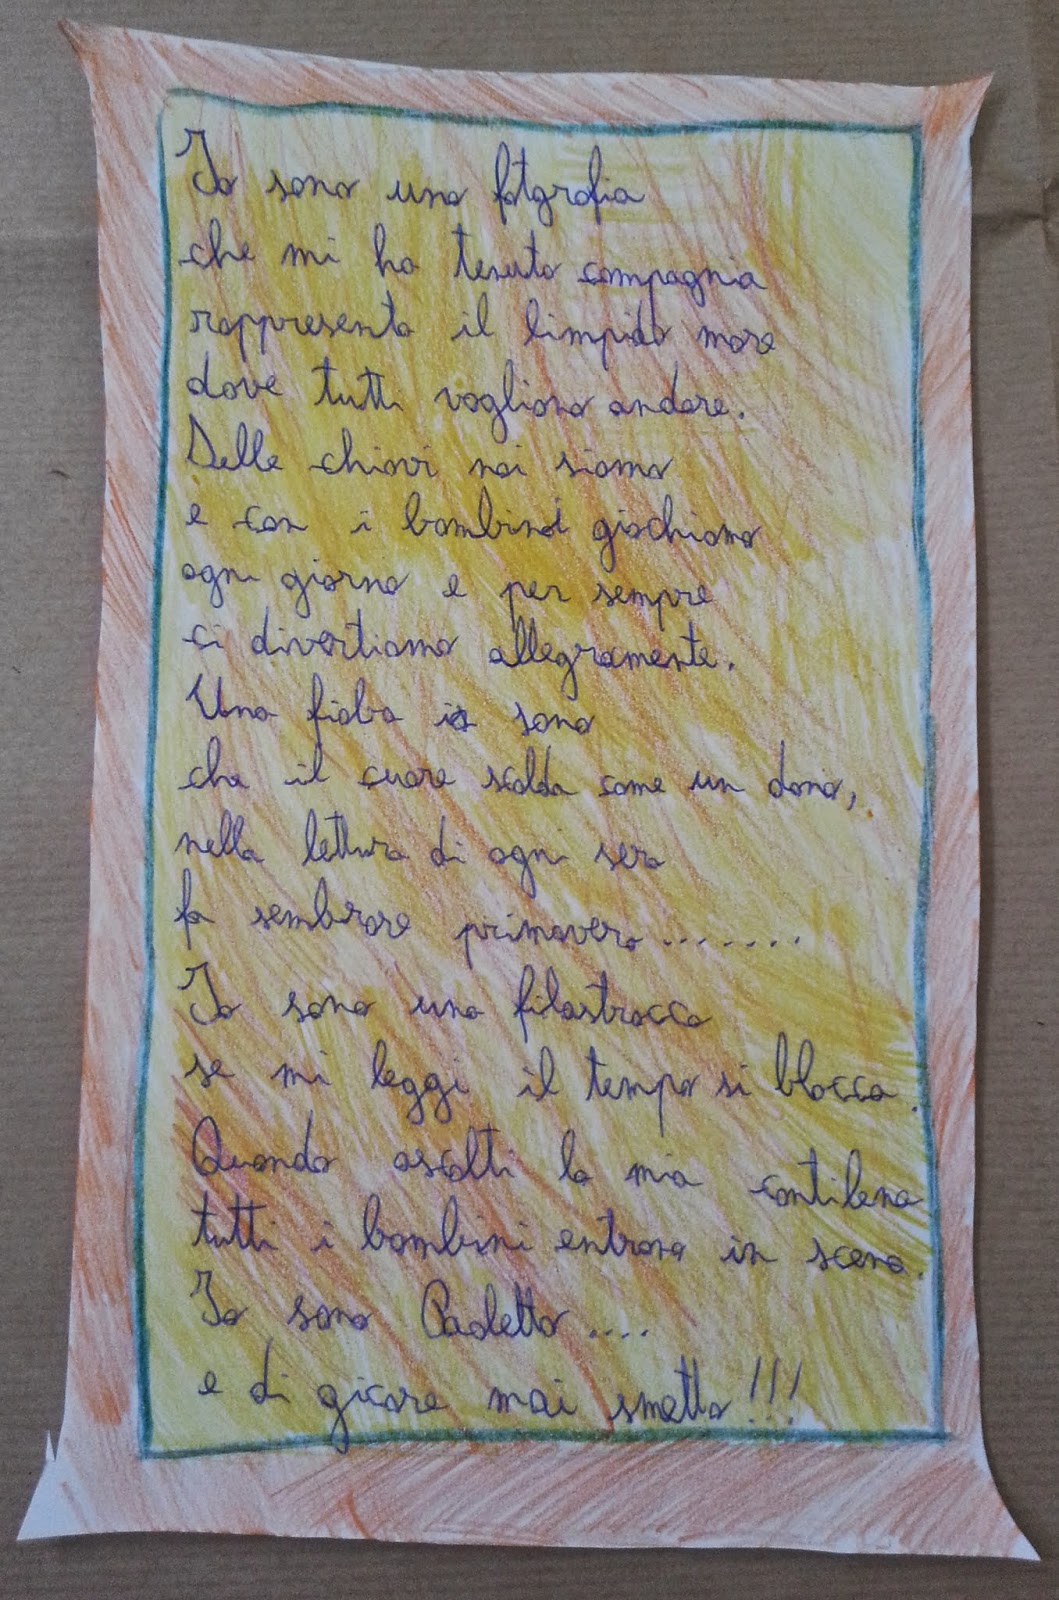 Io sono una fotgrafia
che mi ha tenuto compagnia
rappresento il limpido mare
dove tutti vogliono andare.
Delle chiavi noi siamo
e con i bambini giochiamo
ogni giorno e per sempre
ci divertiamo allegramente.
Una fiaba io sono
che il cuore scalda come un dono,
nella lettura di ogni sera
fa sembrare primavera.......
Io sono una filastrocca
se mi leggi il tempo si blocca.
Quando ascolti la mia cantilena
tutti i bambini entrano in scena.
Io sono Paoletto....
e di gicare mai smetto!!!